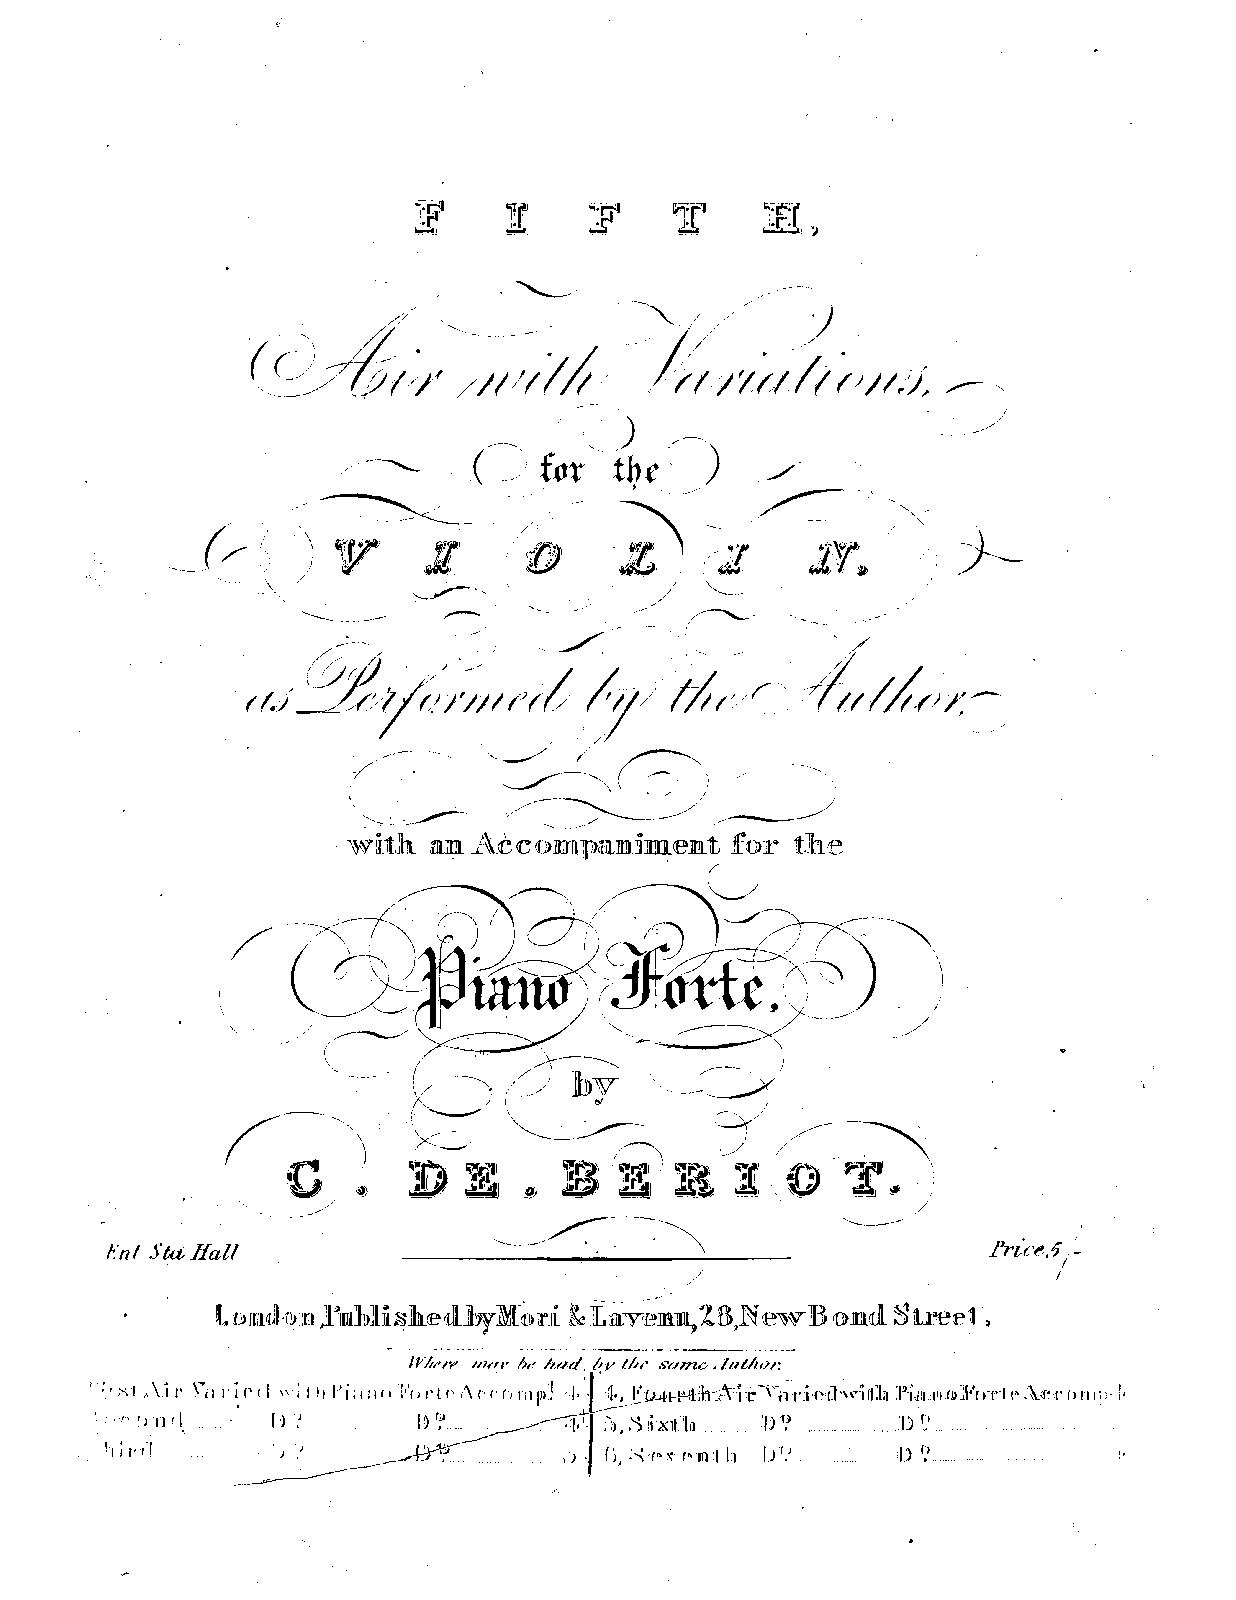 FIFTH,
Air with Variations,
for the
VIOLIN.
as Performed by the Author,
with an Accompaniment for the
Piano Forte,
by
C. DE. BERIOT.
Ent Sta Hall
Price, 5/-
London, Published by Mori & Lavenu, 28, New Bond Street,
Where may be had, by the same Author,
First Air Varied with Piano Forte Accompt 4
Second Dº Dº 4
Third Dº Dº 5
4, Fourth Air Varied with Piano Forte Accompt
5, Sixth Dº Dº
6, Seventh Dº Dº